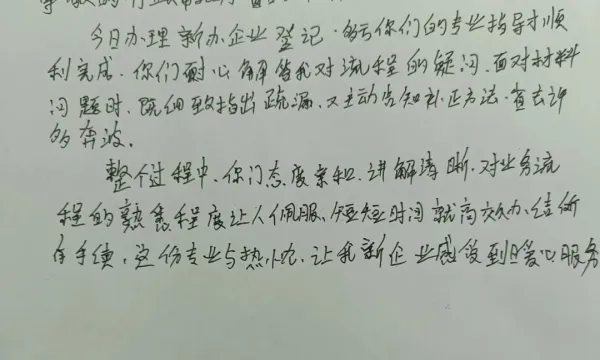 今日办理新办企业登记，多亏你们的专业指导才顺
利完成。你们耐心解答我对流程的疑问，面对材料
问题时，既细致指出疏漏，又主动告知补正方法，省去许
多奔波。
整个过程中，你们态度亲和，讲解清晰，对业务流
程的熟悉程度让人佩服，短短时间就高效办结所
有手续，这份专业与热忱，让我新企业感受到暖心服务